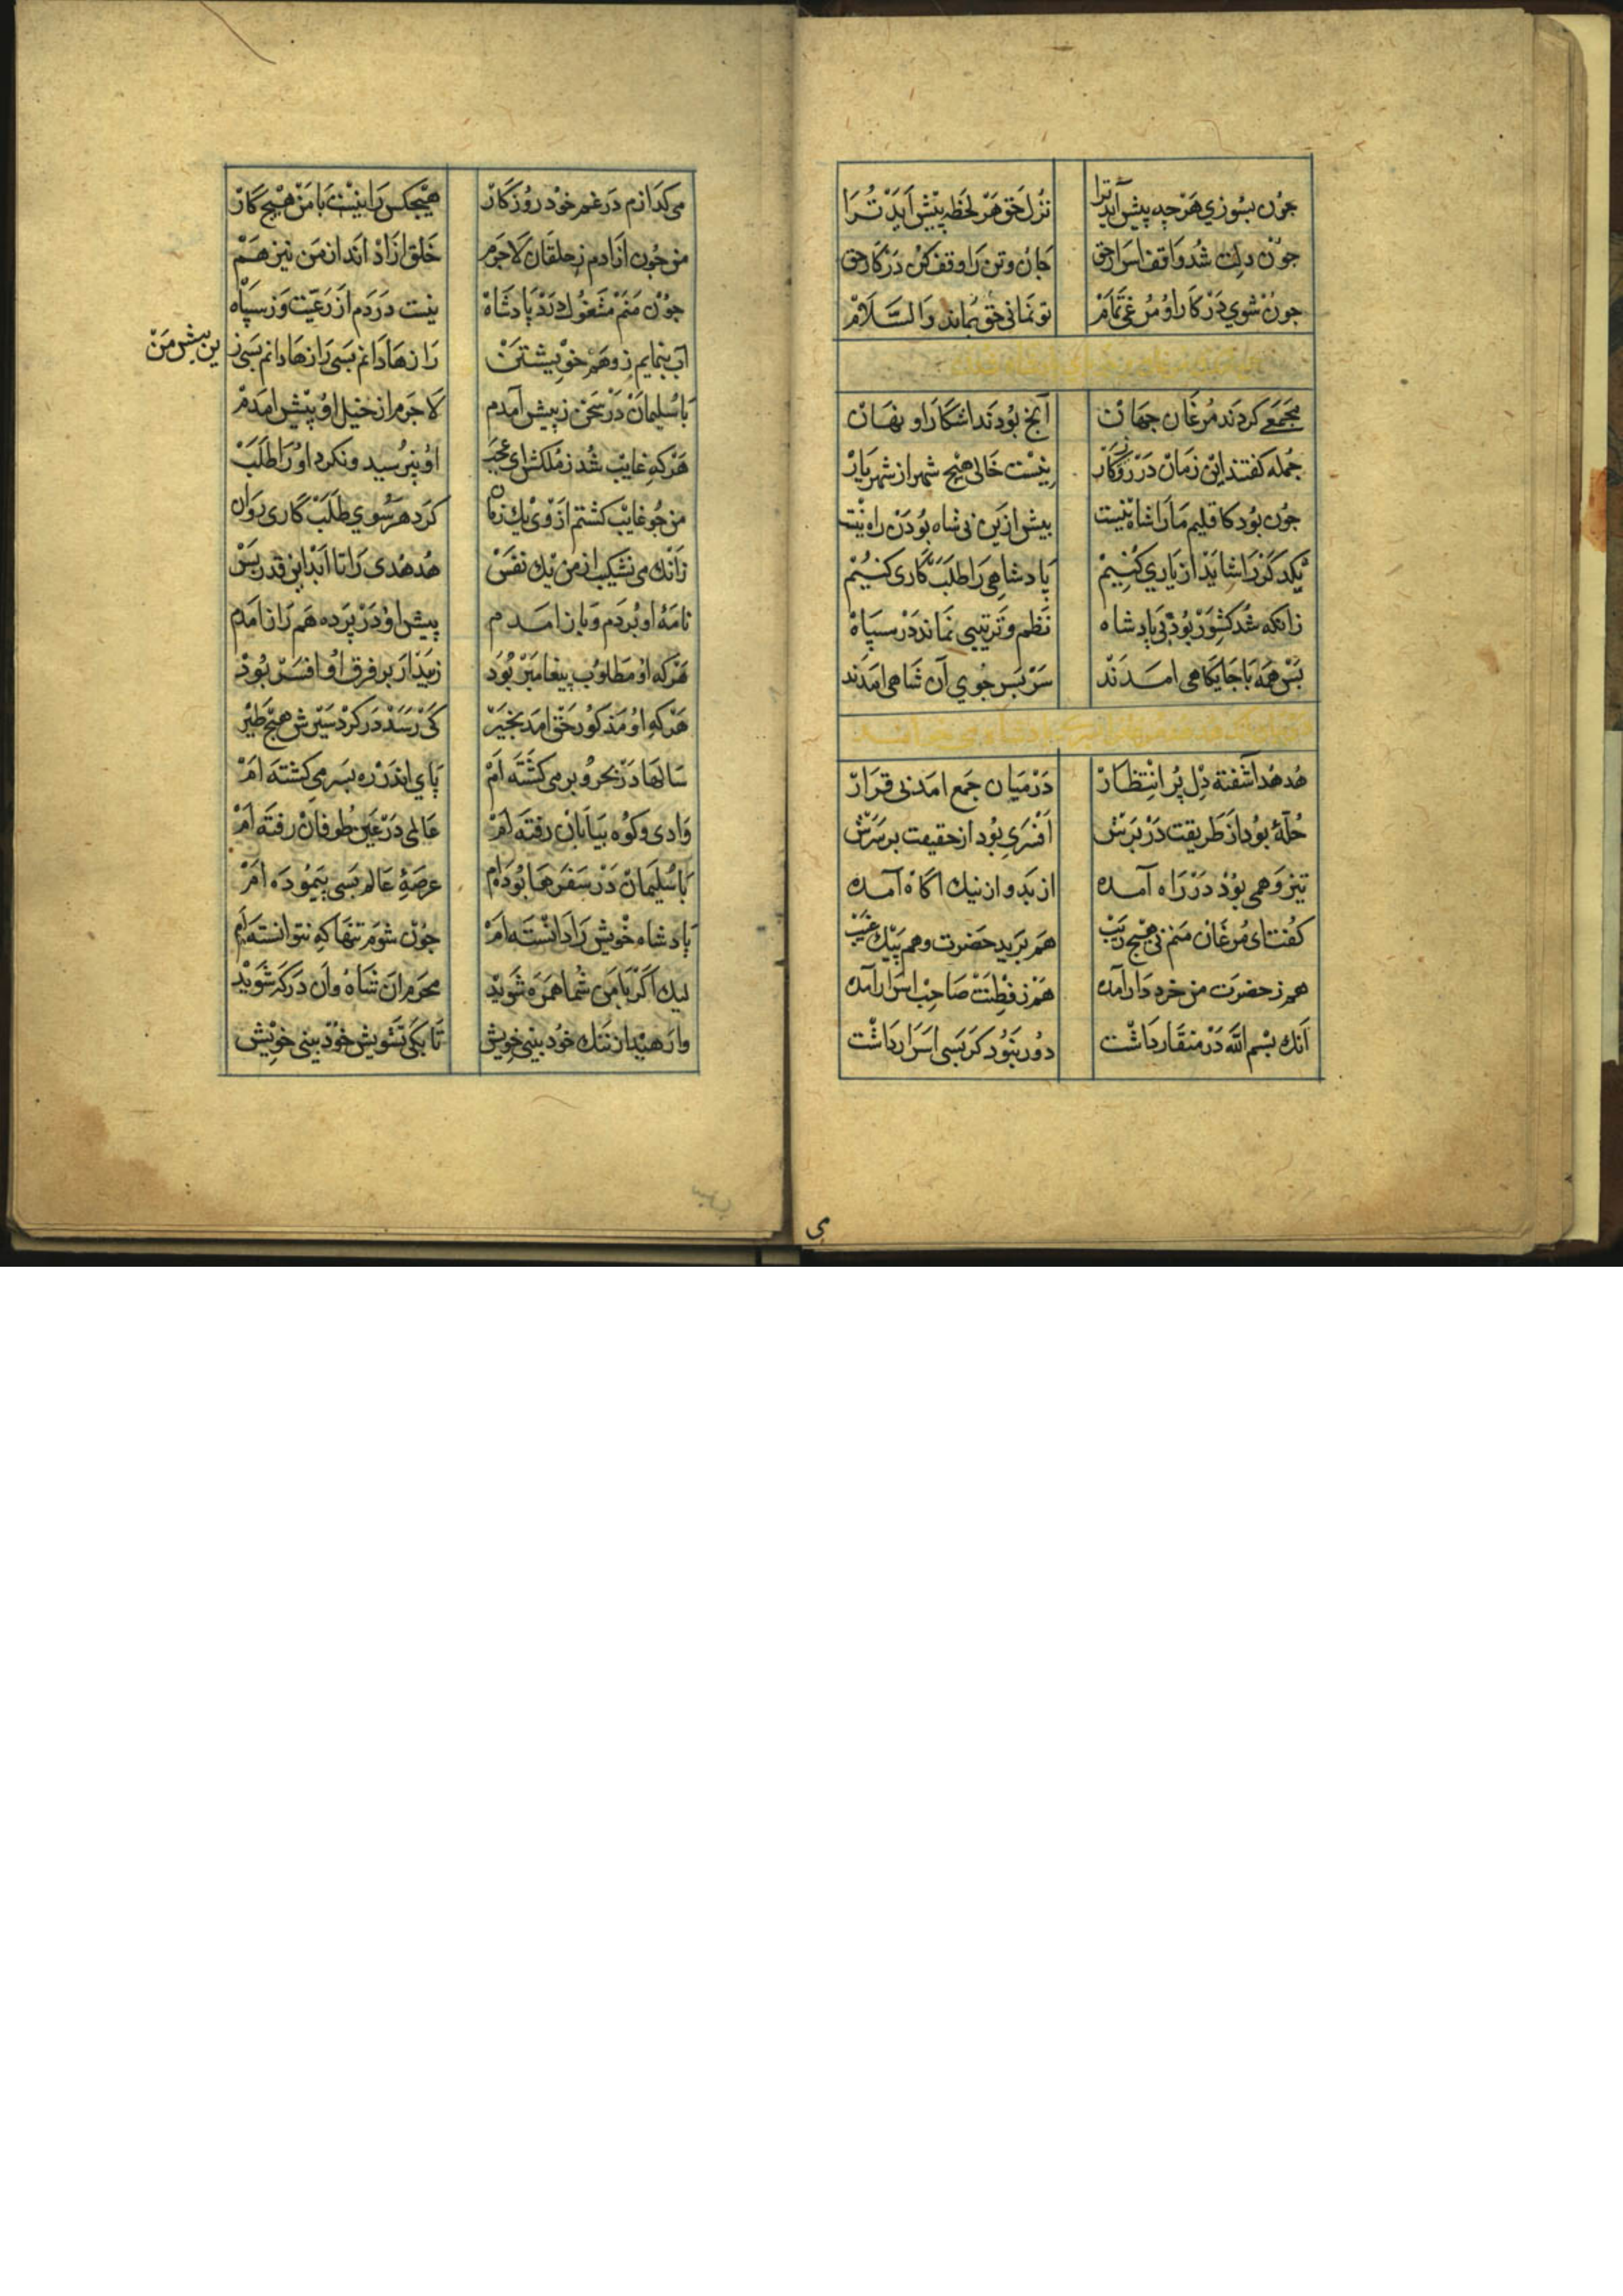 جون بسوزي هرجه پیش آید ترا نزل حق هر لحظه پیش آید ترا
جون دلت شد واقف اسرار حق جان و تن را وقف کن در کار حق
جون شوي در کار او مرغی تمام تو نمانی حق بماند والسلام
مجمعی کردند مرغان جهان آنج بودند اشکارا و نهان
جمله کفتند این زمان در روزکار نیست خالی هیج شهر از شهریار
جون بود کاقلیم ما را شاه نیست بیش ازین بی شاه بودن راه نیست
یکدکر را شاید ار یاري کنیم پادشاهی را طلب کاری کنیم
زانکه شد کشور بود بی پادشاه نظم و ترتیبی نماند در سپاه
بس همه با جایکاهی امدند سر بسر جوي آن شاهی امدند
هدهد اشفته دل پر انتظار در میان جمع امد بی قرار
حلۀ بود از طریقت در برش افسری بود از حقیقت بر سرش
تیز وهمی بود در راه آمده از بد و از نیك اکاه آمده
کفت ای مرغان منم بی هیج ریب هم برید حضرت و هم پیك غیب
هم ز حضرت من خردار آمده هم ز فطنت صاحب اسرار آمده
انك بسم الله در منقار داشت دور نبود کر بسی اسرار داشت
می
می کدازم در غم خود روزکار هیجکس را نیست با من هیج کار
من جون ازادم ز خلقان لاجرم خلق ازاد اند از من نیز هم
جون منم مشغول درد پادشاه نیست دردم از رعیت وز سپاه
آب بنمایم ز وهم خویشتن رازها دانم بسی رازها دانم بسی ز
ین بیش من
با سلیمان در سخن زبیش آمدم لاجرم از خیل او پیش امدم
هرکه غایب شد ز ملکش اي عجب او نپرسید و نکرد او را طلب
من جو غایب کشتم از وی یك زمان کرد هر سوي طلب کاری روان
زانك می نشکیب از من یك نفس هدهدی را تا ابد این قدر بس
نامۀ او بردم و باز امدم پیش او در پرده هم راز امدم
هرکه او مطلوب پیغامبر بود زیبد ار بر فرق او افسر بود
هرکه او مذکور حق امد بخیر کی رسد در کرد سیرش هیج طیر
سالها در بحر و بر می کشته ام پاي اندر ره بسر می کشته ام
وادی و کوه بیابان رفته ام عالمی در عین طوفان رفته ام
با سلیمان در سفرها بوده ام عرصۀ عالم بسی پیموده ام
پادشاه خویش را دانسته ام جون شوم تنها که نتوانسته ام
لیك اکر با من شما همره شوید محرم ان شاه و ان درکه شوید
وارهید از ننك خود بینی خویش تا بکی تشویش خود بینی خویش